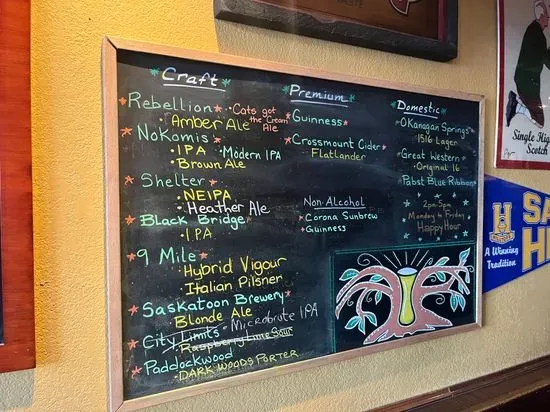 TASTE
Craft
Rebellion
Cats got the Cream Ale
Amber Ale
Nokomis
IPA
Modern IPA
Brown Ale
Shelter
NEIPA
Heather Ale
Black Bridge
IPA
9 Mile
Hybrid Vigour
Italian Pilsner
Saskatoon Brewery
Blonde Ale
City Limits - Microbrute IPA
Raspberry Lime Sour
Paddockwood
DARK WOODS PORTER
Premium
Guinness
Crossmount Cider
Flatlander
Non-Alcohol
Corona Sunbrew
Guinness
Domestic
OKanagan Springs
1516 Lager
Great Western
Original 16
Pabst Blue Ribbon
2pm-5pm
Monday to Friday
Happy Hour
Single Hig
Scotch
H
A Winning
Tradition
SA
HI